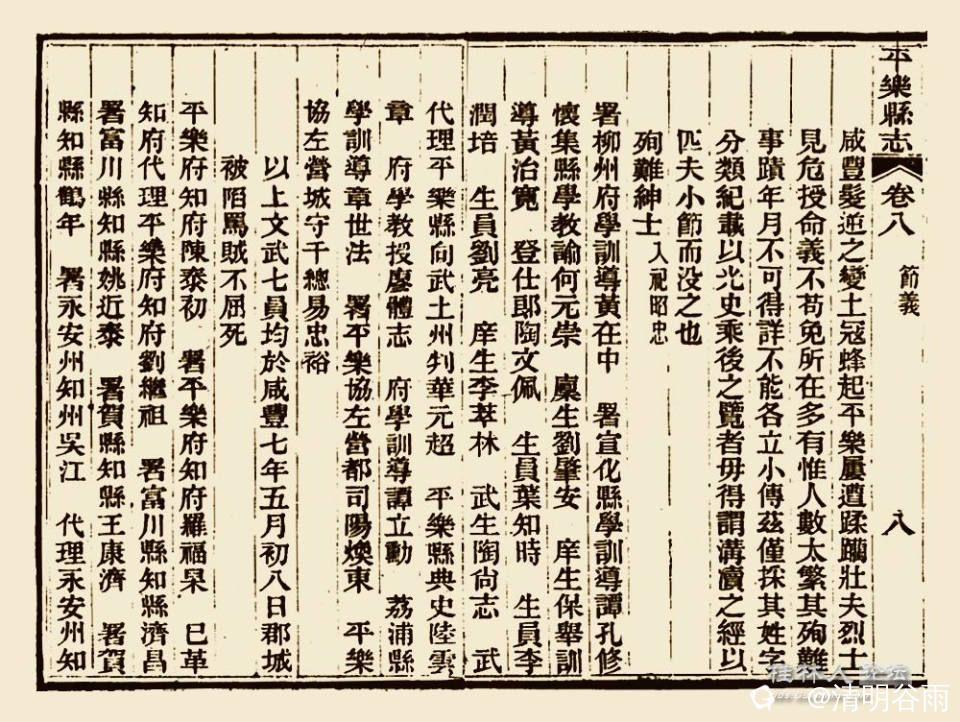 平樂縣志
卷八
節義
八
咸豐髮逆之變土寇蜂起平樂屢遭蹂躪壯夫烈士
見危授命義不苟免所在多有惟人數太繁其殉難
事蹟年月不可得詳不能各立小傳茲僅採其姓字
分類紀載以光史乘後之覽者毋得謂溝瀆之經以
匹夫小節而沒之也
殉難紳士 入祀昭忠
署柳州府學訓導黃在中 署宣化縣學訓導譚孔修
懷集縣學教諭何元崇 廩生劉肇安 庠生保舉訓
導黃治寬 登仕郎陶文佩 生員葉知時 生員李
潤培 生員劉亮 庠生李萃林 武生陶尚志 武
代理平樂縣向武土州判華元超 平樂縣典史陸雲
章 府學教授廖體志 府學訓導譚立勳 荔浦縣
學訓導章世法 署平樂協左營都司陽煥東 平樂
協左營城守千總易忠裕
以上文武七員均於咸豐七年五月初八日郡城
被陷罵賊不屈死
平樂府知府陳泰初 署平樂府知府羅福杲 已革
知府代理平樂府知府劉繼祖 署富川縣知縣濟昌
署富川縣知縣姚近泰 署賀縣知縣王康濟 署賀
縣知縣鶴年 署永安州知州吳江 代理永安州知
桂林人论坛
@清明谷雨